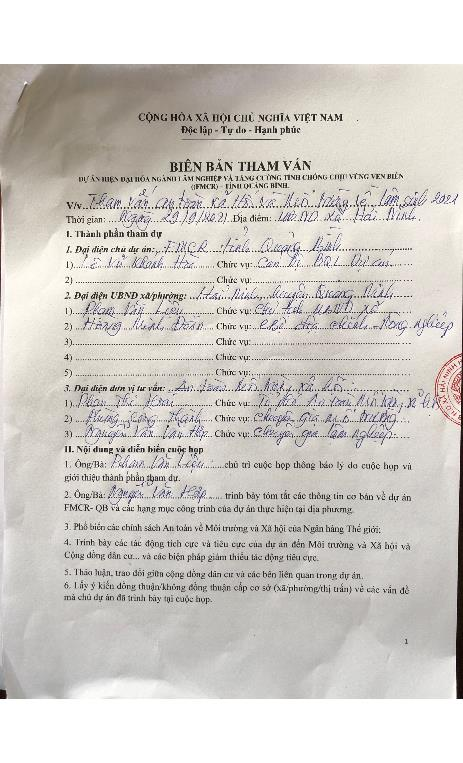 CỘNG HÒA XÃ HỘI CHỦ NGHĨA VIỆT NAM
Độc lập - Tự do - Hạnh phúc
BIÊN BẢN THAM VẤN
DỰ ÁN HIỆN ĐẠI HÓA NGÀNH LÂM NGHIỆP VÀ TĂNG CƯỜNG TÍNH CHỐNG CHỊU VÙNG VEN BIỂN
(FMCR) - TỈNH QUẢNG BÌNH.
V/v: Tham vấn an toàn xã hội và Môi trường
Thời gian: Ngày 29/9/2021 Địa điểm: UBND xã Hải Ninh
I. Thành phần tham dự
1. Đại diện chủ dự án: FMCR tỉnh Quảng Bình
1) Chức vụ: Cán bộ BQL Dự án
2) Chức vụ:
2. Đại diện UBND xã/phường: Hải Ninh, huyện Quảng Ninh
1) Phạm Văn Liệu Chức vụ: Chủ tịch UBND xã
2) Hoàng Minh Chức vụ: địa chính - Nông nghiệp
3) Chức vụ:
4) Chức vụ:
5) Chức vụ:
3. Đại diện đơn vị tư vấn: An toàn Môi trường xã hội
1) Phan Thị Chức vụ: An toàn Môi trường, xã hội
2) Chức vụ: Chuyên gia môi trường
3) Nguyễn Văn Chức vụ: Chuyên gia lâm nghiệp
II. Nội dung và diễn biến cuộc họp
1. Ông/Bà: Phạm Văn Liệu chủ trì cuộc họp thông báo lý do cuộc họp và
giới thiệu thành phần tham dự.
2. Ông/Bà: Nguyễn Văn trình bày tóm tắt các thông tin cơ bản về dự án
FMCR- QB và các hạng mục công trình của dự án thực hiện tại địa phương.
3. Phổ biến các chính sách An toàn về Môi trường và Xã hội của Ngân hàng Thế giới;
4. Trình bày các tác động tích cực và tiêu cực của dự án đến Môi trường và Xã hội và
Cộng đồng dân cư... và các biện pháp giảm thiểu tác động tiêu cực.
5. Thảo luận, trao đổi giữa cộng đồng dân cư và các bên liên quan trong dự án.
6. Lấy ý kiến đồng thuận/không đồng thuận cấp cơ sở (xã/phường/thị trấn) về các vấn đề
mà chủ dự án đã trình bày tại cuộc họp.
1